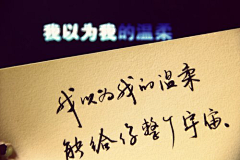 我以为我的温柔
我以为我的温柔
能给你整个宇宙。